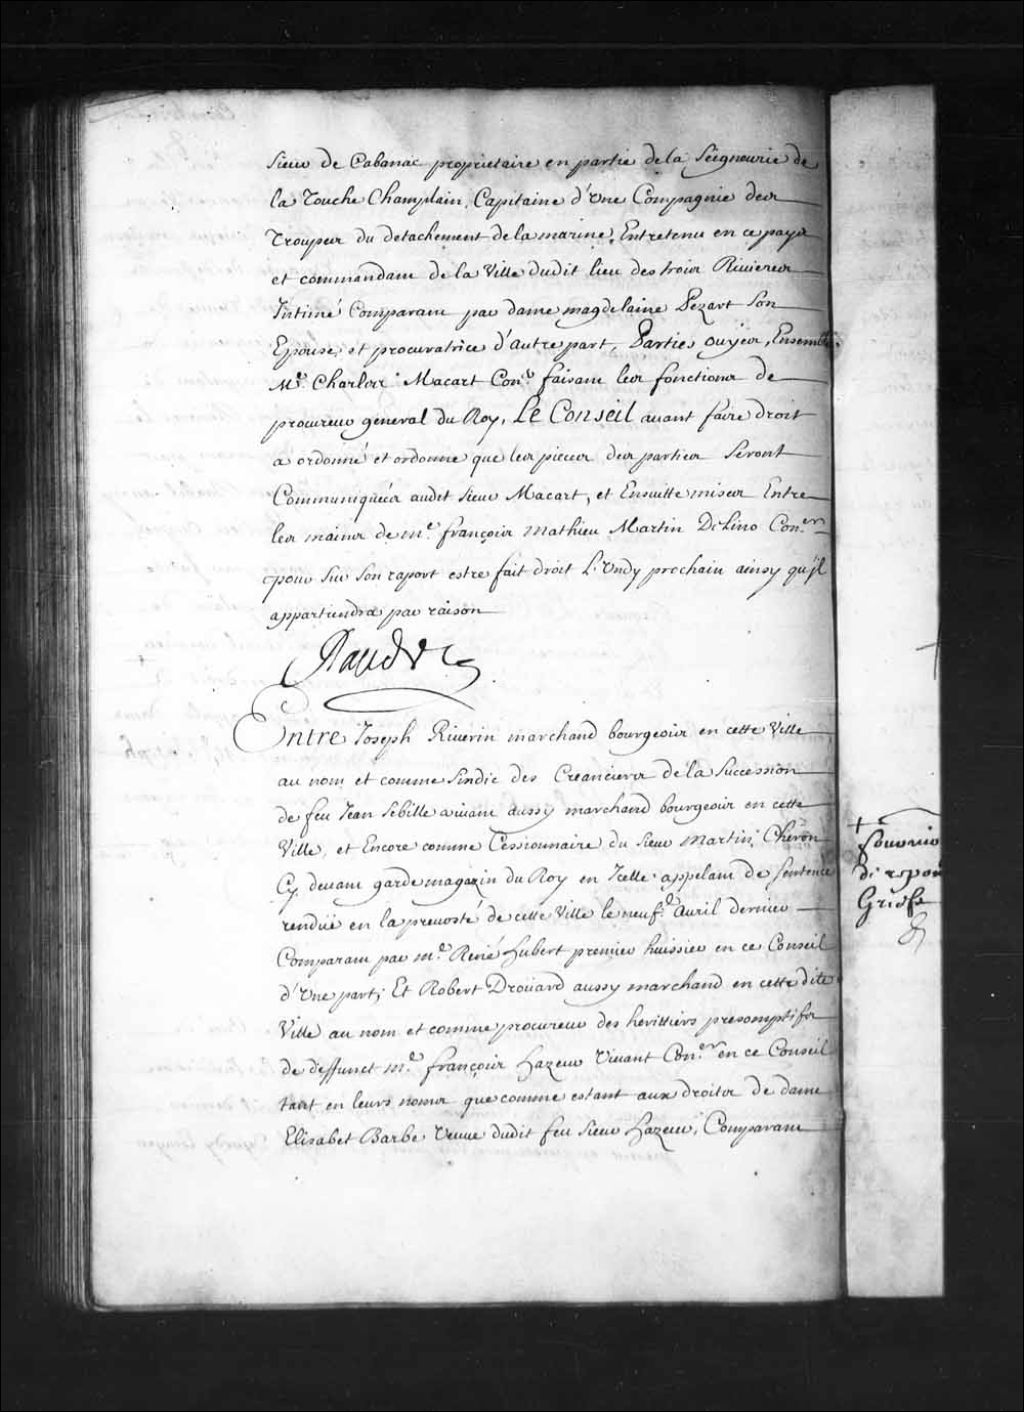 Sieur de Cabanac proprietaire en partie de la Seigneurie de
la Touche Champlain, Capitaine d'Une Compagnie des
Troupes du detachement de la marine, Entretenu en ce pays
et commandant de la Ville dudit lieu des trois Rivieres
Intimé Comparant par dame magdelaine Pezart Son
Epouse, et procuratrice d'autre part, Parties ouyes, Ensemble
Me. Charles Macart Coner. faisant les fonctions de
procureur general du Roy, Le Conseil avant faire droit
a ordonné et ordonne que les pieces des parties Seront
Communiquées audit Sieur Macart, et Ensuitte mises Entre
les mains de me. françois mathieu Martin Delino Coner.
pour Sur Son raport estre fait droit L'Undy prochain ainsy qu'jl
appartiendra par raison
Raudot
Entre Joseph Riverin marchand bourgeois en cette Ville
au nom et comme Sindic des Creanciers de la Succession
de feu Jean Sebille vivant aussy marchand bourgeois en cette
Ville, et Encore comme Cessionnaire du Sieur Martin Cheron
Cy devant garde magazin du Roy en Icelle appelant de Sentence
rendüe en la prevosté de cette Ville le neufe. Avril dernier
Comparant par me. René hubert premier huissier en ce Conseil
d'Une part; Et Robert Drouard aussy marchand en cette dite
Ville au nom et comme procureur des herittiers presomptifs
de deffunct me. françois hazeur Vivant Coner. en ce Conseil
tant en leurs noms que comme estant aux droits de dame
Elisabet Barbe Veuve dudit feu Sieur hazeur, Comparant
Griefs